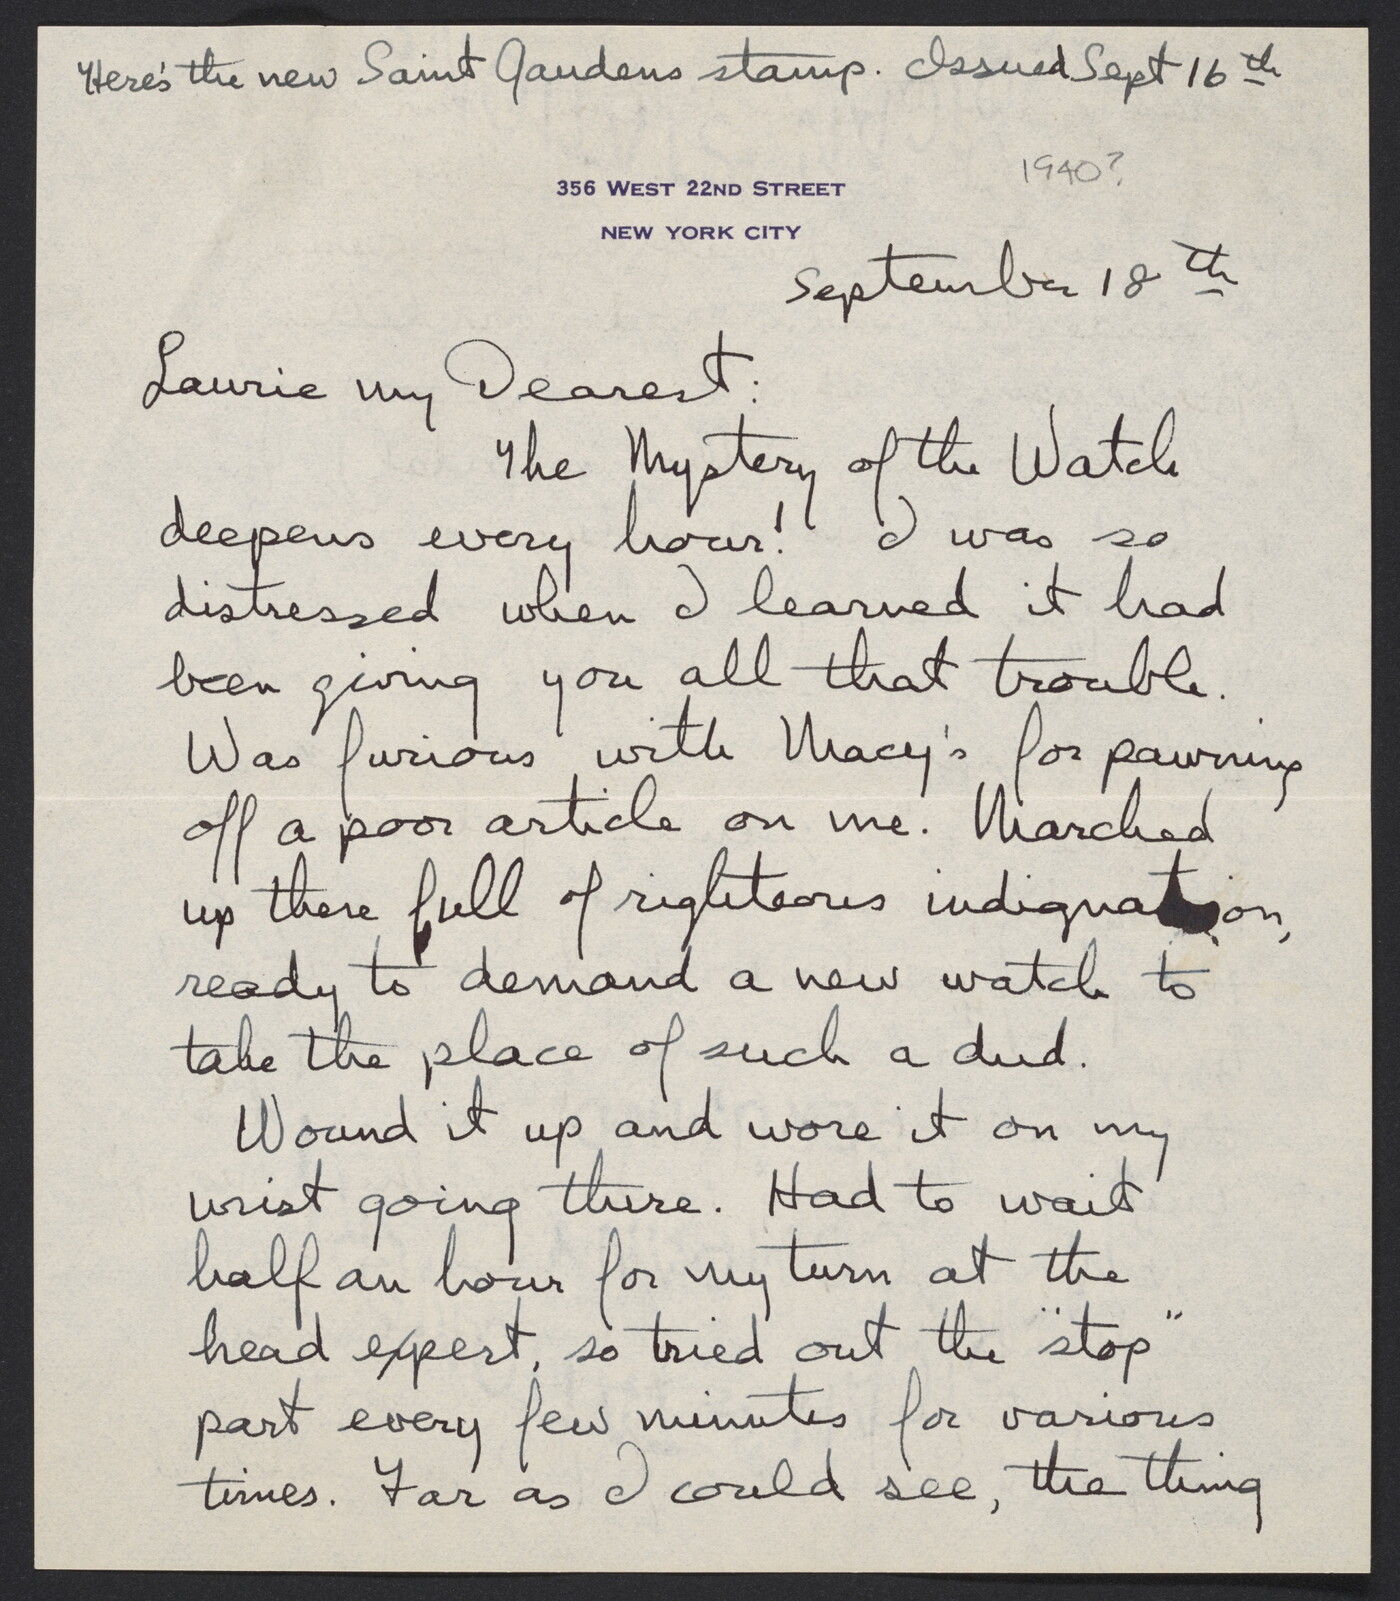 Here's the new Saint Gaudens stamp. Issued Sept 16th
1940?
356 WEST 22ND STREET
NEW YORK CITY
September 18th
Laurie my Dearest:
The Mystery of the Watch
deepens every hour! I was so
distressed when I learned it had
been giving you all that trouble.
Was furious with Macy's for pawning
off a poor article on me. Marched
up there full of righteous indignation,
ready to demand a new watch to
take the place of such a dud.
Wound it up and wore it on my
wrist going there. Had to wait
half an hour for my turn at the
head expert, so tried out the "stop"
part every few minutes for various
times. Far as I could see, the thing